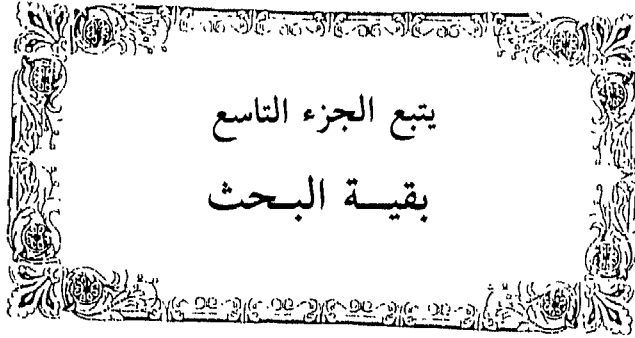 يتبع الجزء التاسع
بقيـــة البـحث